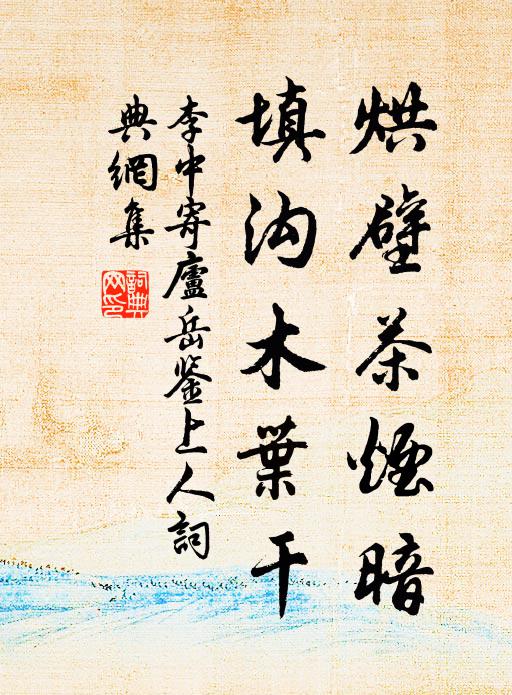 烘壁茶煙暗
填沟木葉干
李中寄廬岳鉴上人詞
典網集
詞典网印